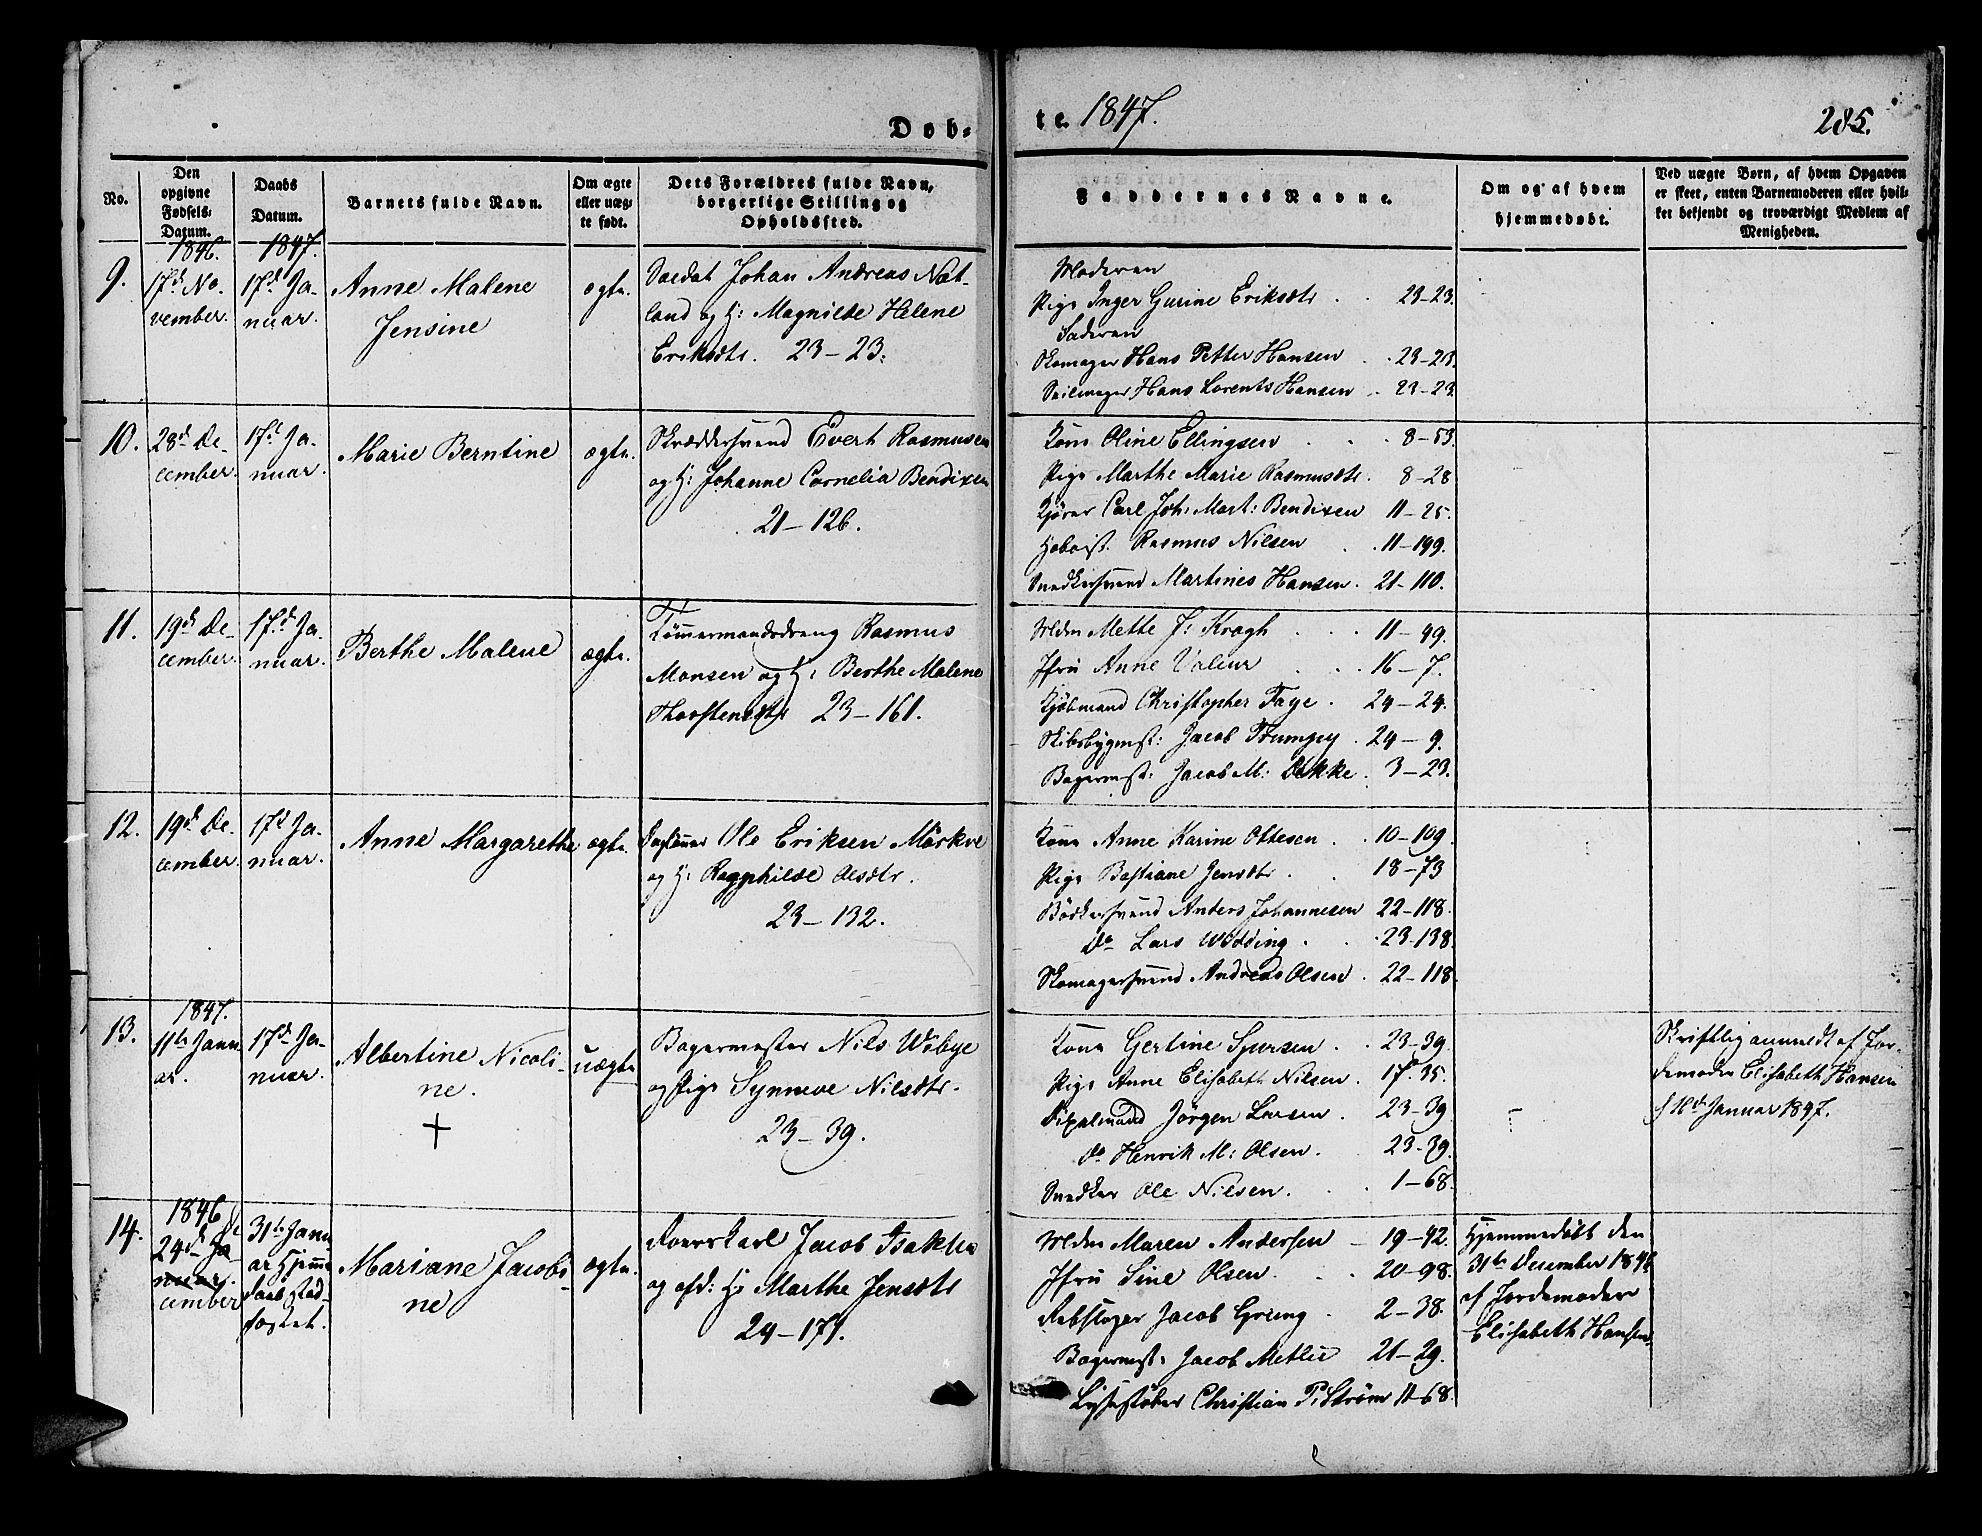 Døb-
te. 1847.
285.
No.
Den
opgivne
Fødsels-
Datum.
Daabs
Datum.
Barnets fulde Navn.
Om ægte
eller uæg-
te født.
Dets Forældres fulde Navn,
borgerlige Stilling og
Opholdssted.
Faddernes Navne.
Om og af hvem
hjemmedøbt.
Ved uægte Børn, af hvem Opgaven
er skeet, enten Barnemoderen eller hvil-
ket bekjendt og troværdigt Medlem af
Menigheden.
1846.
1847.
9.
17d No-
vember.
17d Ja-
nuar.
Anne Malene
Jensine
ægte.
Soldat Johan Andreas Nat-
land og H: Magnilde Helene
Eriksdtr. 23-23.
Moderen
Pige Inger Gurine Eriksdtr . . 23-23.
Faderen
Skomager Hans Petter Hansen . . 23-23.
Seilmager Hans Lorents Hansen . 23-23
10.
28d De-
cember.
17d Ja-
nuar.
Marie Berntine
ægte.
Skræddersvend Evert Rasmusen
og H: Johanne Cornelia Bendixen
21-126.
Kone Oline Ellingsen . . . 8-53.
Pige Marthe Marie Rasmusdtr. 8-28
Kjører Carl Joh: Mart: Bendixen 11-25.
Hoboist. Rasmus Nilsen . . 11-199.
Snedkersvend Martines Hansen. 21-110.
11.
19d De-
cember.
17d Ja-
nuar.
Berthe Malene
ægte.
Tømmermandsdreng Rasmus
Monsen og H: Berthe Malene
Thorstensdtr 23-161.
Mdm Mette J: Krogh . . . 11-99.
Jfru Anne Valeur . . . 16-7.
Kjøbmand Christopher Faye . 24-24.
Skibsbygmst: Jacob Trumpy . 24-9.
Bagermst: Jacob M: Dekke . 3-23.
12.
19d De-
cember.
17d Ja-
nuar.
Anne Margarethe
ægte.
Dagløner Ole Eriksen Mørkve
og H: Ragnhilde Olsdtr.
23-132.
Kone Anne Karine Ottesen . 10-109.
Pige Bastiane Jensdtr . . 18-73
Bødkersvend Anders Johannesen 22-118.
Do Lars Wedding . . . 23-138.
Skomagersvend Andreas Olsen . 22-118.
13.
1847.
11te Janu-
ar.
17d Ja-
nuar.
Albertine Nicoli-
ne.
+
uægte
Bagermester Nils Wibye
og Pige Synneve Nilsdtr.
23-39.
Kone Gertine Sjursen . . 23-39.
Pige Anne Elisabeth Nilsen . 17-35.
Jørgen Larsen . 23-39
do Henrik M: Olsen . . 23-39.
Snedker Ole Nilsen . . . 1-68.
Skriftlig anmeldt af Jor-
demoder Elisabeth Hansen
Januar 1847.
14.
1846
24de Ja De
nuar.
cember
31te Janu
ar Hjemme
daab stad-
fæstet.
Mariane Jacobi-
ne
ægte.
Roerskarl Jacob Isaksen
og afd: H: Marthe Jensdtr
24-171.
Mdm Maren Andersen - 19-42.
Jfru Sine Olsen . . . 20-98.
Rebslager Jacob Grung . 2-38.
Bagermst: Jacob Metlie 21-29.
Lysestøber Christian P: Strøm 11-68.
Hjemmedøbt den
31te December 1846
af Jordemoder
Elisabeth Hansen